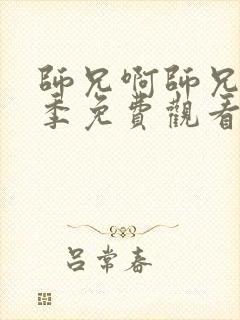 師兄啊師兄
季免費觀看
吕常春